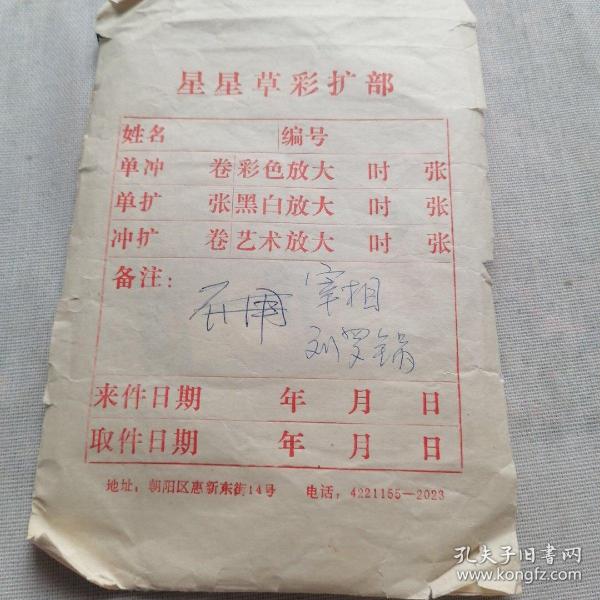 星星草彩扩部
姓名 编号
单冲 卷 彩色放大 吋 张
单扩 张 黑白放大 吋 张
冲扩 卷 艺术放大 吋 张
备注：
宰相
刘罗锅
来件日期 年 月 日
取件日期 年 月 日
地址：朝阳区惠新东街14号 电话：4221155—2023
孔夫子旧书网
www.kongfz.com